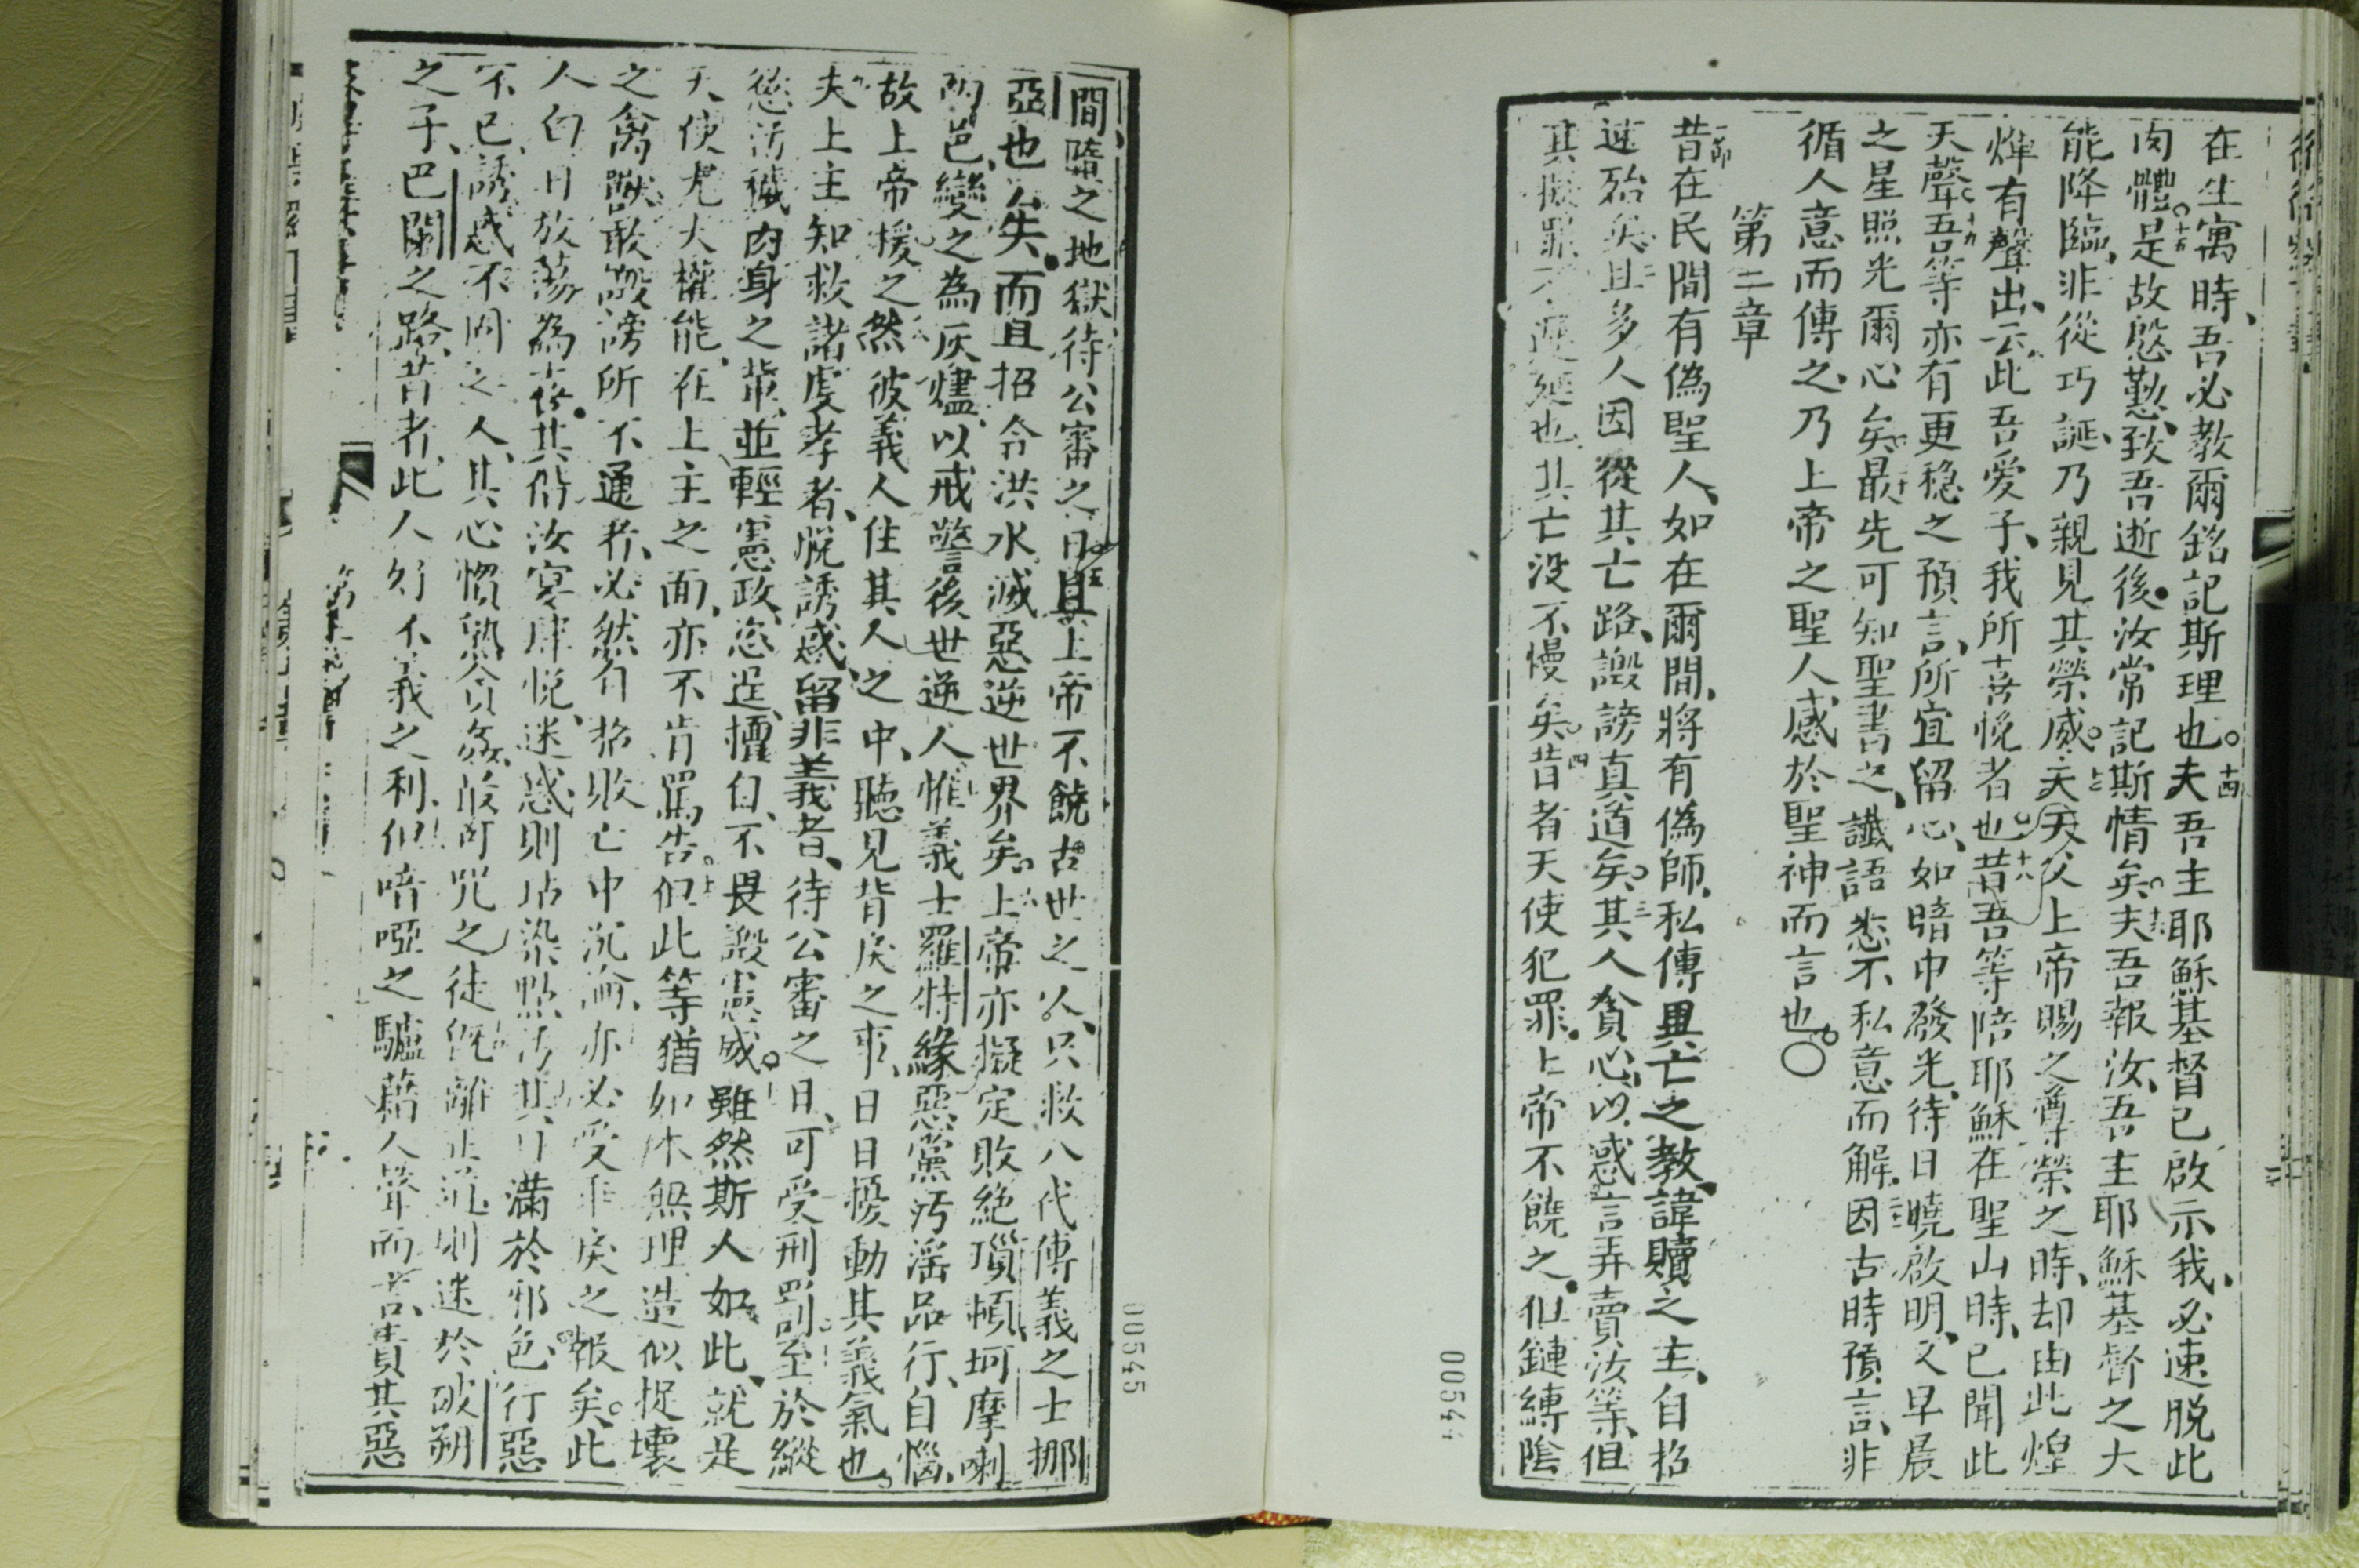 在生寓時、吾必教爾銘記斯理也。十四夫吾主耶穌基督已啟示我、必速脱此
肉體。十五是故慇懃、致吾逝後、汝常記斯情矣。十六夫吾報汝、吾主耶穌基督之大
能降臨、非從巧誕、乃親見其榮威。十七夫天父上帝賜之尊榮之時、却由此煌
煇有聲出、云、此吾愛子、我所喜悅者也。十八昔吾等陪耶穌在聖山時、已聞此
天聲。十九吾等亦有更穏之預言、所宜留心、如暗中發光、待日曉啟明、又早晨
之星照光爾心矣。最先可知聖書之讖語、悉不私意而解。因古時預言、非
循人意而傳之、乃上帝之聖人感於聖神而言也。〇
第二章
一節昔在民間有偽聖人、如在爾間、將有偽師、私傳異亡之教、諱贖之主、自招
速殆矣。二且多人因從其亡路、譭謗真道矣。三其人貪心、以惑言弄賣汝等、但
其擬罪不遲延也、其亡没不慢矣。四昔者天使犯罪、上帝不饒之、但鏈縛陰
間墮之地獄、待公審之日。五且上帝不饒古世之人、只救八代傳義之士挪
亞也矣、而且招令洪水滅惡逆世界矣。六上帝亦擬定敗絶瑣頓、坷摩喇
两邑、變之為灰燼、以戒警後世逆人。惟義士羅特緣惡黨汚滛品行、自惱、
故上帝援之。然彼義人住其人之中、聽見背戾之事、日日擾動其義氣也。
夫上主知救諸虔孝者、脱誘惑、留非義者、待公審之日、可受刑罰。至於縱
慾汚穢肉身之輩、並輕憲政、恣逞擅自、不畏譭憲威。雖然斯人如此、就是
天使尤大權能、在上主之面、亦不肯罵告。但此等猶如木無理造似捉壞
之禽獸、敢毁謗所不通者、必然行招敗亡中沉淪、亦必受乖戾之報矣。此
人白日放蕩為喜。其俗汝宴肆悅、迷惑則玷染點汚、其目滿於邪色、行惡
不已、誘惑不固之人、其心慣熟貪婪、故可咒之徒、既離正道、則迷於破朔
之子、巴闌之路、昔者、此人好不義之利、但喑啞之驢、藉人聲而言、責其惡
00545
00544